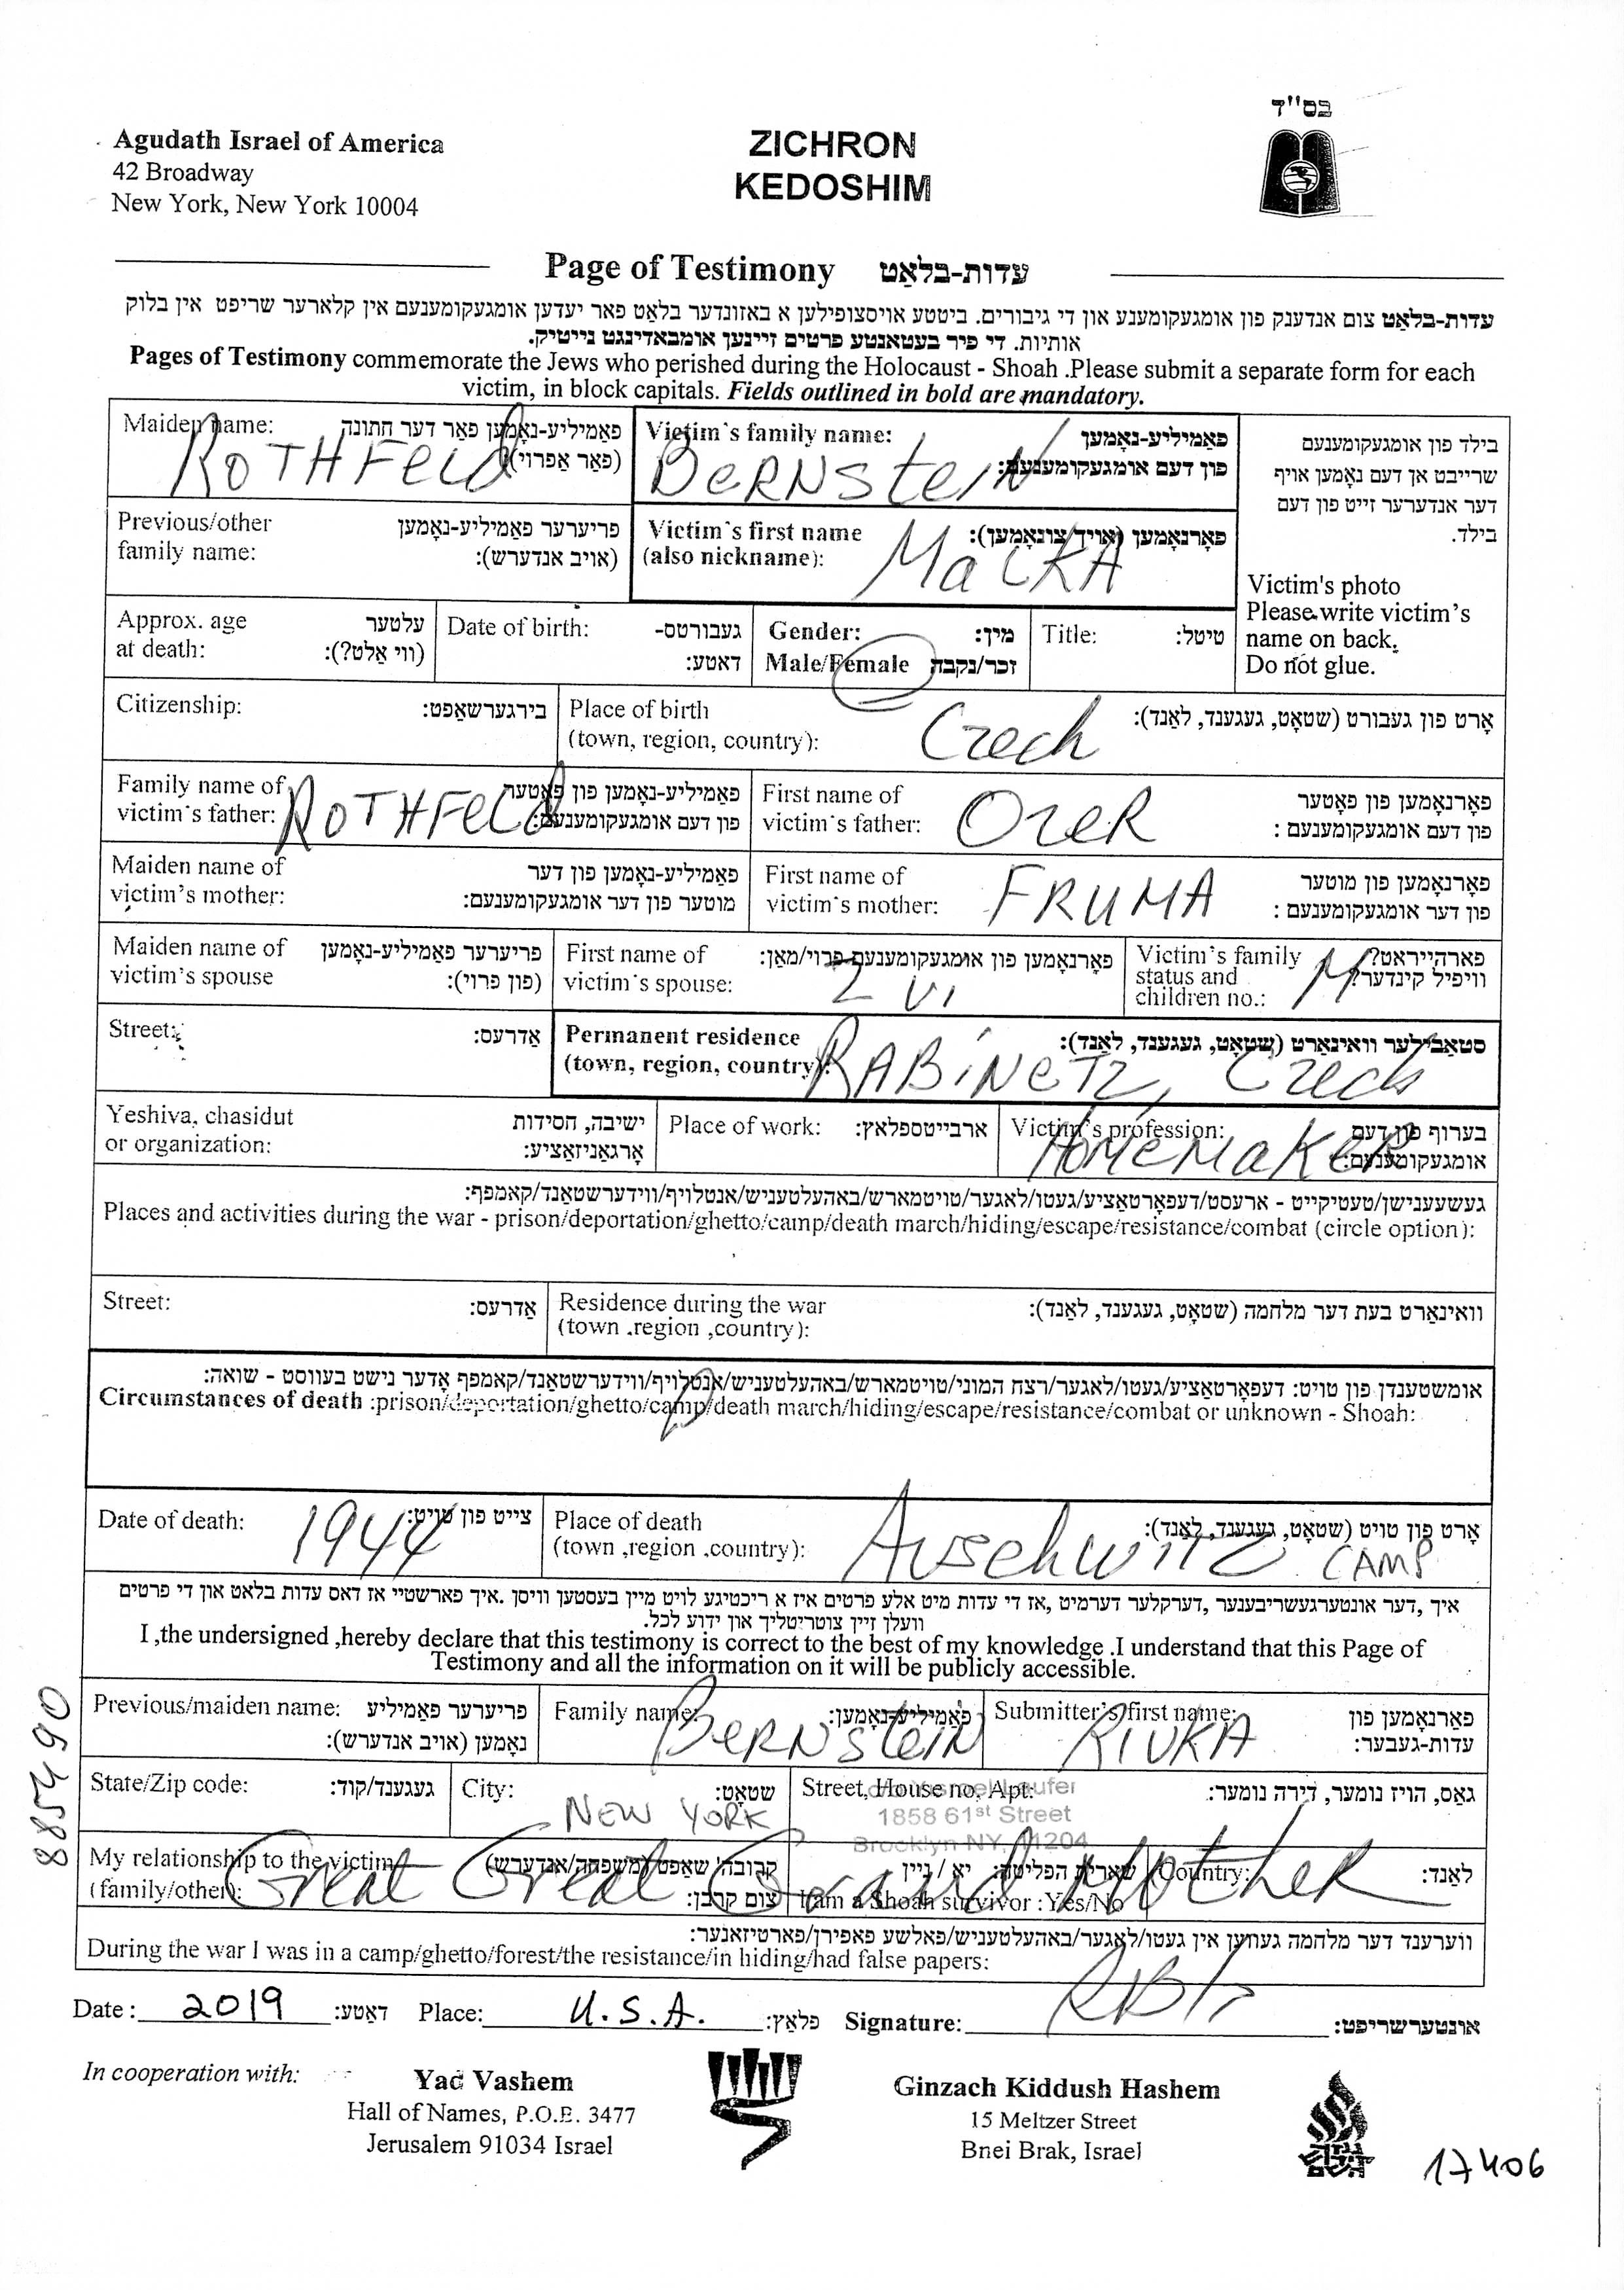 בס"ד
Agudath Israel of America
42 Broadway
New York, New York 10004
ZICHRON
KEDOSHIM
Page of Testimony עדות-בלאַט
עדות-בלאַט צום אנדענק פון אומגעקומענע און די גיבורים. ביטטע אויסצופילען א באזונדער בלאַט פאר יעדען אומגעקומענעם אין קלארער שריפט אין בלוק
אותיות. די פיר בעטאנטע פרטים זיינען אומבאדינגט נייטיק.
Pages of Testimony commemorate the Jews who perished during the Holocaust - Shoah .Please submit a separate form for each
victim, in block capitals. Fields outlined in bold are mandatory.
Maiden name: פאַמיליע-נאָמען פאַר דער חתונה
(פאר אַפרוי)
ROTHFeld
Victim's family name: פאַמיליע-נאָמען
פון דעם אומגעקומענעם:
BeRNSteIN
בילד פון אומגעקומענעם
שרייבט אן דעם נאָמען אויף
דער אנדערער זייט פון דעם
בילד.
Victim's photo
Please write victim's
name on back.
Do not glue.
Previous/other פריערער פאַמיליע-נאָמען
family name: (אויב אנדערש):
Victim's first name פאָרנאָמען (אויך צונאָמען):
(also nickname):
MaLKA
Approx. age עלטער
at death: (ווי אַלט?):
Date of birth: געבורטס-
דאטע:
Gender: מין:
Male/Female זכר/נקבה
Title: טיטל:
Citizenship: בירגערשאַפט:
Place of birth אָרט פון געבורט (שטאָט, געגענד, לאַנד):
(town, region, country):
Czech
Family name of פאַמיליע-נאָמען פון פאָטער
victim's father: פון דעם אומגעקומענעם:
ROTHFeld
First name of פאָרנאָמען פון פאָטער
victim's father: פון דעם אומגעקומענעם :
OzeR
Maiden name of פאַמיליע-נאָמען פון דער
victim's mother: מוטער פון דער אומגעקומענעם:
First name of פאָרנאָמען פון מוטער
victim's mother: פון דער אומגעקומענעם :
FRUMA
Maiden name of פריערער פאַמיליע-נאָמען
victim's spouse (פון פרוי):
First name of פאָרנאָמען פון אומגעקומענעם פרוי/מאַן:
victim's spouse:
Zvi
Victim's family פארהייראט?
status and וויפיל קינדער?
children no.:
M
Street: אַדרעס:
Permanent residence סטאַבילער וואינאָרט (שטאָט, געגענד, לאַנד):
(town, region, country):
RABiNeTz, Czech
Yeshiva, chasidut ישיבה, חסידות
or organization: אָרגאַניזאַציע:
Place of work: ארבייטספלאץ:
Victim's profession: בערוף פון דעם
אומגעקומענעם:
HomeMaKeR
געשעענישן/טעטיקייט - ארעסט/דעפאָרטאַציע/געטו/לאגער/טויטמארש/באהעלטעניש/אנטלויף/ווידערשטאַנד/קאמפף:
Places and activities during the war - prison/deportation/ghetto/camp/death march/hiding/escape/resistance/combat (circle option):
Street: אַדרעס:
Residence during the war וואינאָרט בעת דער מלחמה (שטאָט, געגענד, לאַנד):
(town .region ,country):
אומשטענדן פון טויט: דעפאָרטאַציע/געטו/לאגער/רצח המוני/טויטמארש/באהעלטעניש/אנטלויף/ווידערשטאַנד/קאמפף אָדער נישט בעוווסט - שואה:
Circumstances of death :prison/deportation/ghetto/camp/death march/hiding/escape/resistance/combat or unknown - Shoah:
Date of death: צייט פון טויט:
1944
Place of death אָרט פון טויט (שטאָט, געגענד, לאַנד):
(town ,region .country):
Auschwitz CAMP
איך ,דער אונטערגעשריבענער ,דערקלער דערמיט ,אז די עדות מיט אלע פרטים איז א ריכטיגע לויט מיין בעסטען וויסן .איך פארשטיי אז דאס עדות בלאט און די פרטים
וועלן זיין צוטריטליך און ידוע לכל.
I ,the undersigned ,hereby declare that this testimony is correct to the best of my knowledge .I understand that this Page of
Testimony and all the information on it will be publicly accessible.
Previous/maiden name: פריערער פאַמיליע
נאָמען (אויב אנדערש):
Family name: פאַמיליע-נאָמען:
BeRNsteIN
Submitter's first name: פאָרנאָמען פון
עדות-געבער:
RIVKA
State/Zip code: געגענד/קוד:
City: שטאָט:
NEW YORK
Street, House no. Apt: גאַס, הויז נומער, דירה נומער:
1858 61st Street
Brooklyn NY, 11204
My relationship to the victim קרובה' שאַפט (משפחה/אנדערש)
(family/other): צום קרבן:
שארית הפליטה: יא / ניין
I am a Shoah survivor : Yes/No
Country: לאַנד:
Great Great Grand Mother
ווערענד דער מלחמה געווען אין געטו/לאַגער/באַהעלטעניש/פאלשע פאפירן/פארטיזאנער:
During the war I was in a camp/ghetto/forest/the resistance/in hiding/had false papers:
Date : 2019 דאַטע: Place: U.S.A. פלאַץ: Signature: אונטערשריפט:
In cooperation with:
Yad Vashem
Hall of Names, P.O.B. 3477
Jerusalem 91034 Israel
Ginzach Kiddush Hashem
15 Meltzer Street
Bnei Brak, Israel
גנזך
קידוש
השם
17406
885490